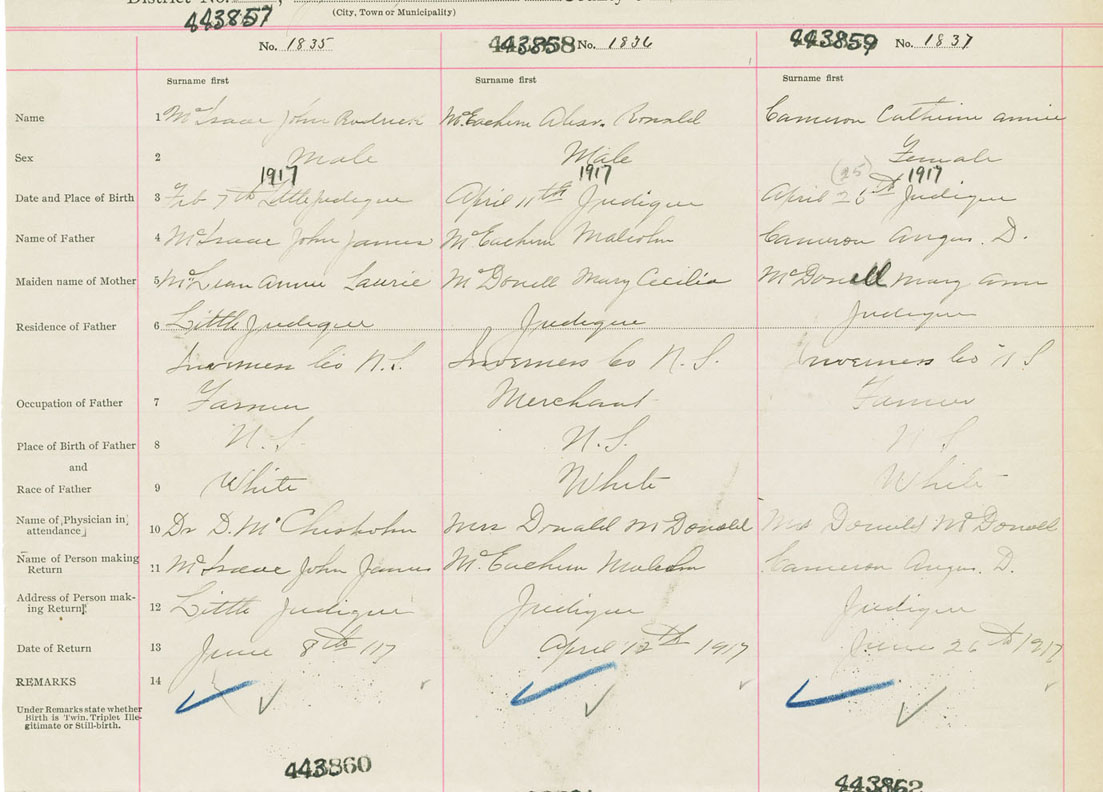 District No. , County
(City, Town or Municipality)
443857
No. 1835 443858 No. 1836 443859 No. 1837
Surname first Surname first Surname first
Name 1 McIsaac John Rodrick McEachern Alex. Ronald Cameron Catherine Annie
Sex 2 Male Male Female
1917 1917 (25) 1917
Date and Place of Birth 3 Feb 7th Little Judique April 11th Judique April 26th Judique
Name of Father 4 McIsaac John James McEachern Malcolm Cameron Angus. D.
Maiden name of Mother 5 McLean Annie Laurie McDonell Mary Cecilia McDonell Mary Ann
Residence of Father 6 Little Judique Judique Judique
Inverness Co N.S. Inverness Co N.S. Inverness Co N S
Occupation of Father 7 Farmer Merchant Farmer
Place of Birth of Father 8 N.S. N.S. N S
and
Race of Father 9 White White White
Name of Physician in
attendance 10 Dr D. McChisholm Mrs Donald McDonald Mrs Donald McDonell
Name of Person making
Return 11 McIsaac John James McEachern Malcolm Cameron Angus. D.
Address of Person mak-
ing Return 12 Little Judique Judique Judique
Date of Return 13 June 8th /17 April 12th 1917 June 26th 1917
REMARKS 14
Under Remarks state whether
Birth is Twin, Triplet Ille-
gitimate or Still-birth.
443860 443862